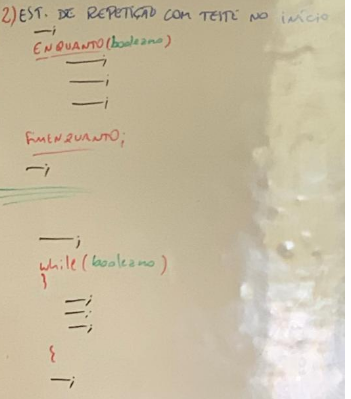 2) EST. DE REPETIÇÃO COM TESTE NO INÍCIO
—;
ENQUANTO (booleano)
—;
—;
—;
FIMENQUANTO;
—;
—;
while (booleano)
}
—;
—;
—;
{
—;